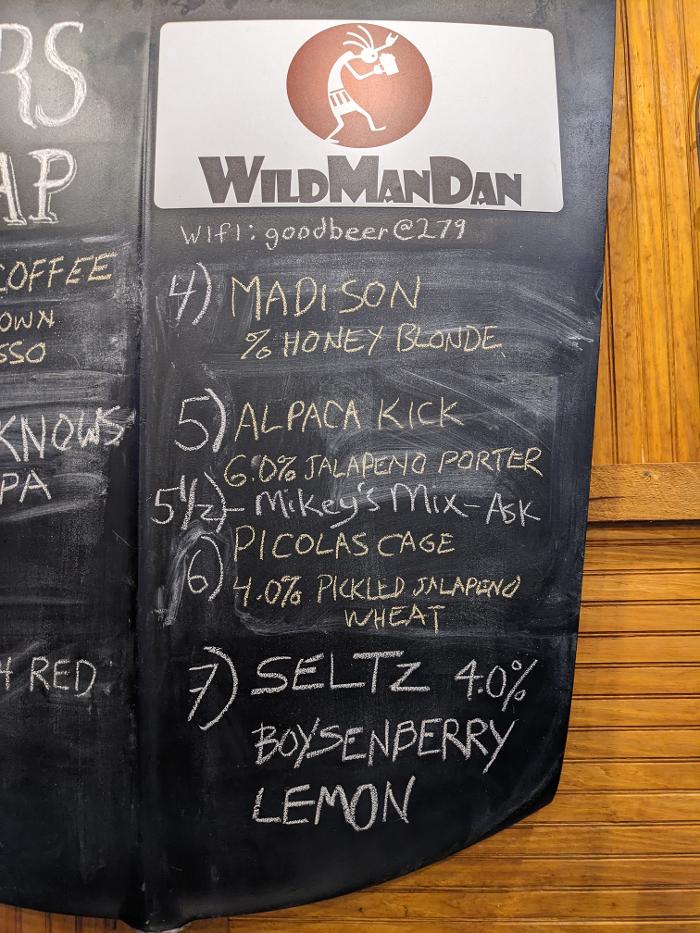 RS
AP
COFFEE
OWN
SSO
KNOWS
PA
RED
WILDMANDAN
WIFI: goodbeer@279
4) MADISON
% HONEY BLONDE
5) ALPACA KICK
6.0% JALAPENO PORTER
5 1/2) - Mikey's Mix - ASK
6) PICOLAS CAGE
4.0% PICKLED JALAPENO
WHEAT
7) SELTZ 4.0%
BOYSENBERRY
LEMON